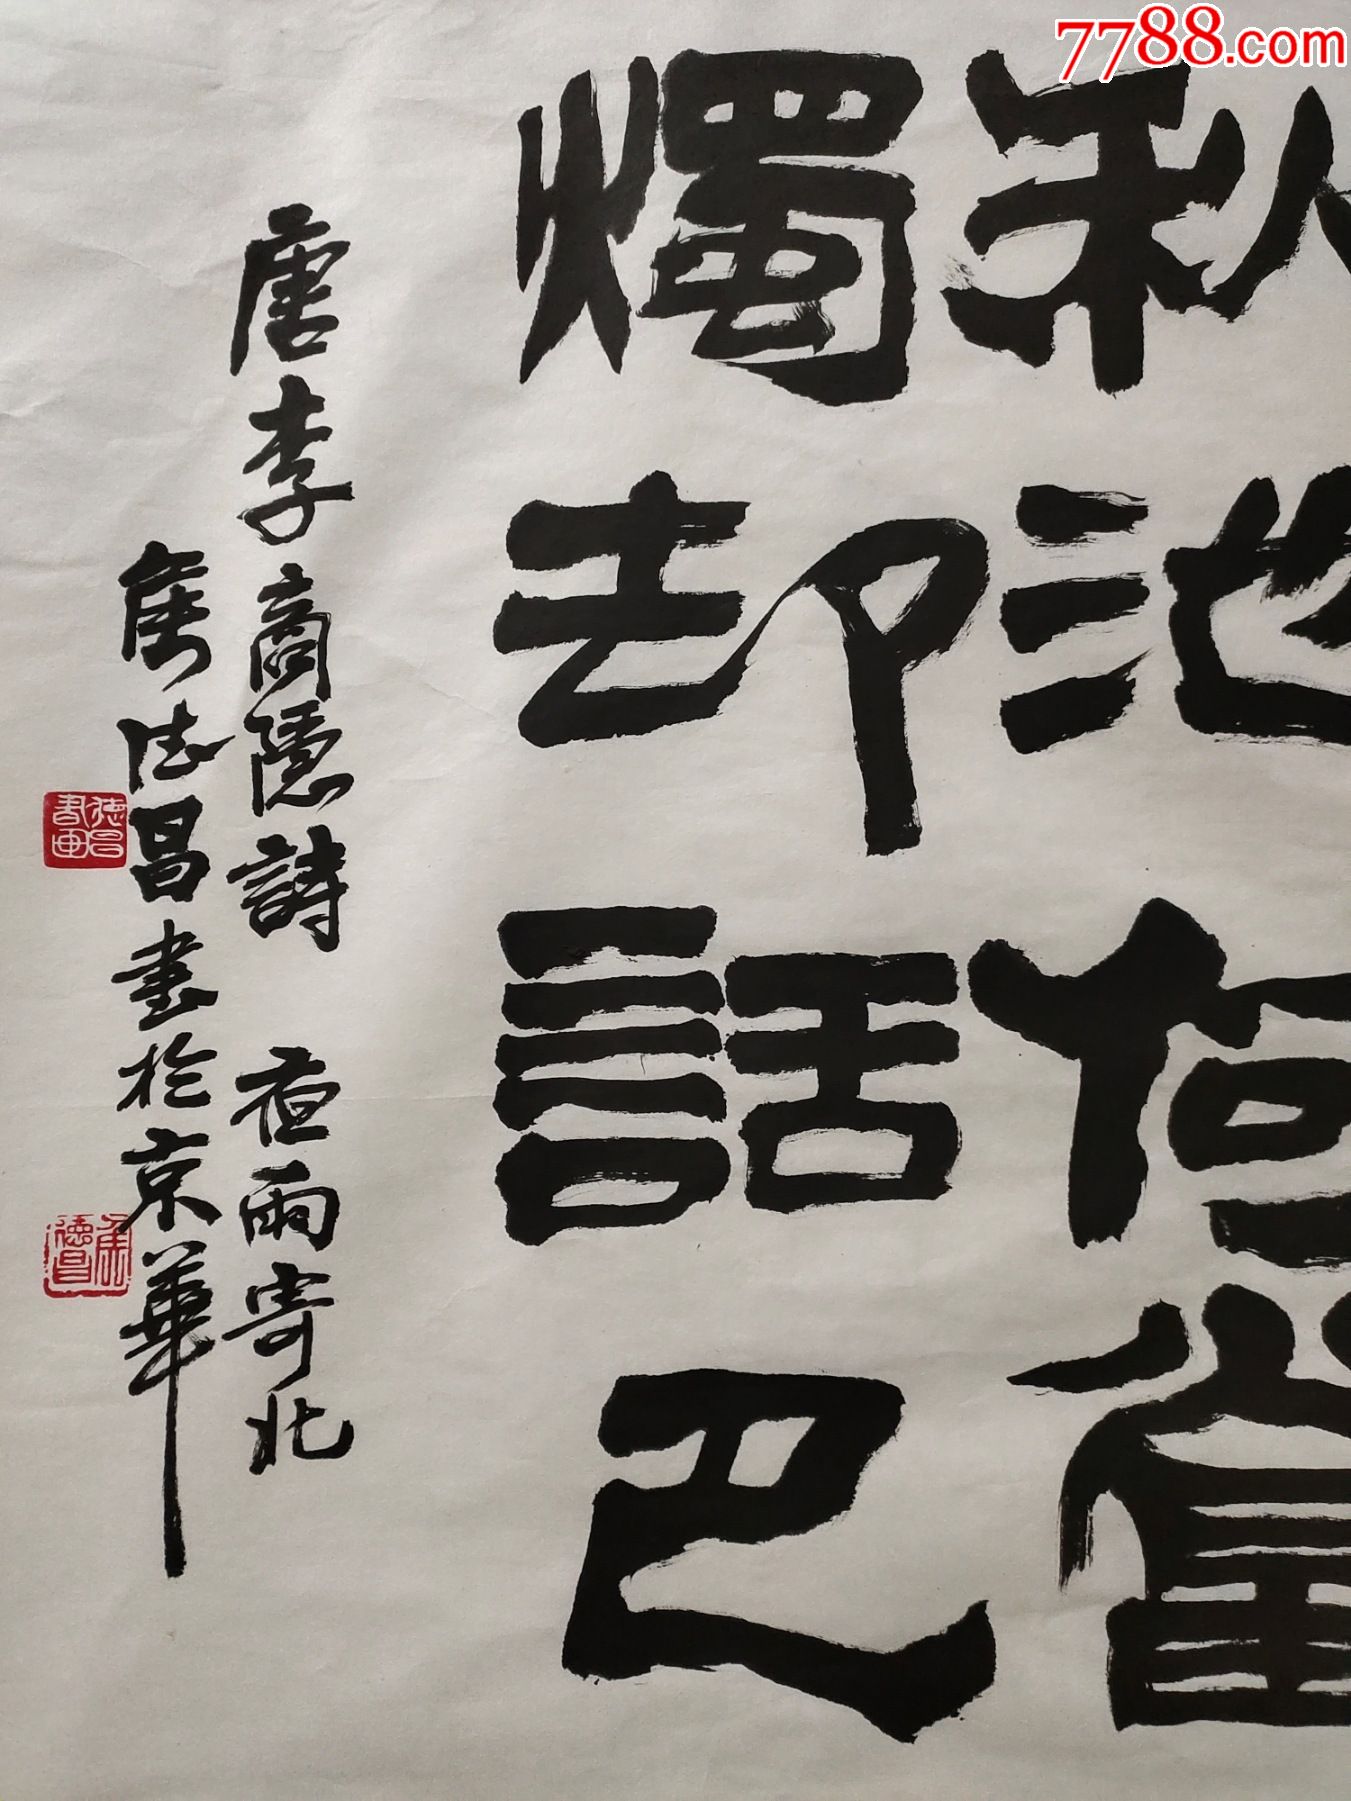 7788.com
秋池何當
燭却話巴
唐李商隱詩 夜雨寄北
德昌書於京華
德昌書画
德昌